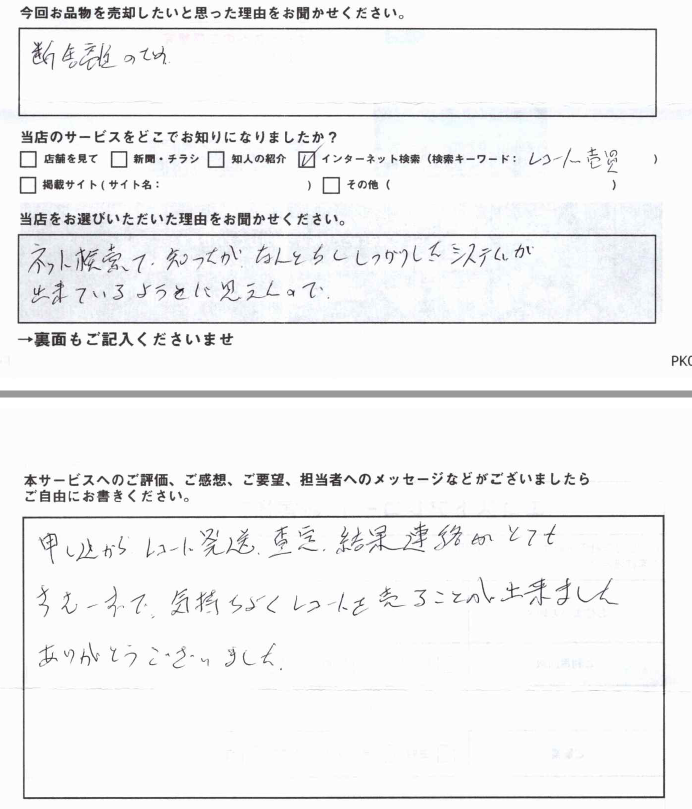 今回お品物を売却したいと思った理由をお聞かせください。
断舎離のため
当店のサービスをどこでお知りになりましたか？
店舗を見て 新聞・チラシ 知人の紹介 インターネット検索（検索キーワード： レコード売買 ）
掲載サイト（サイト名： ） その他（ ）
当店をお選びいただいた理由をお聞かせください。
ネット検索で知ったが、なんとなくしっかりしたシステムが
出来ているように見えたので。
→裏面もご記入くださいませ
本サービスへのご評価、ご感想、ご要望、担当者へのメッセージなどがございましたら
ご自由にお書きください。
申し込から レコード発送、査定、結果連絡がとても
で、気持ちよくレコードを売ることが出来ました
ありがとうございました。